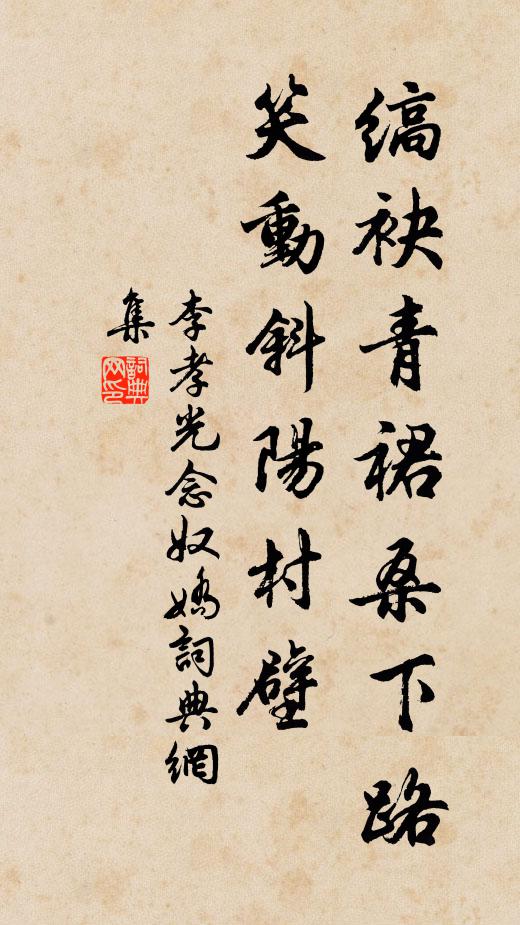 缟袂青裙桑下路
笑動斜陽村壁
李孝光念奴嬌詞典網
集
詞典
网印